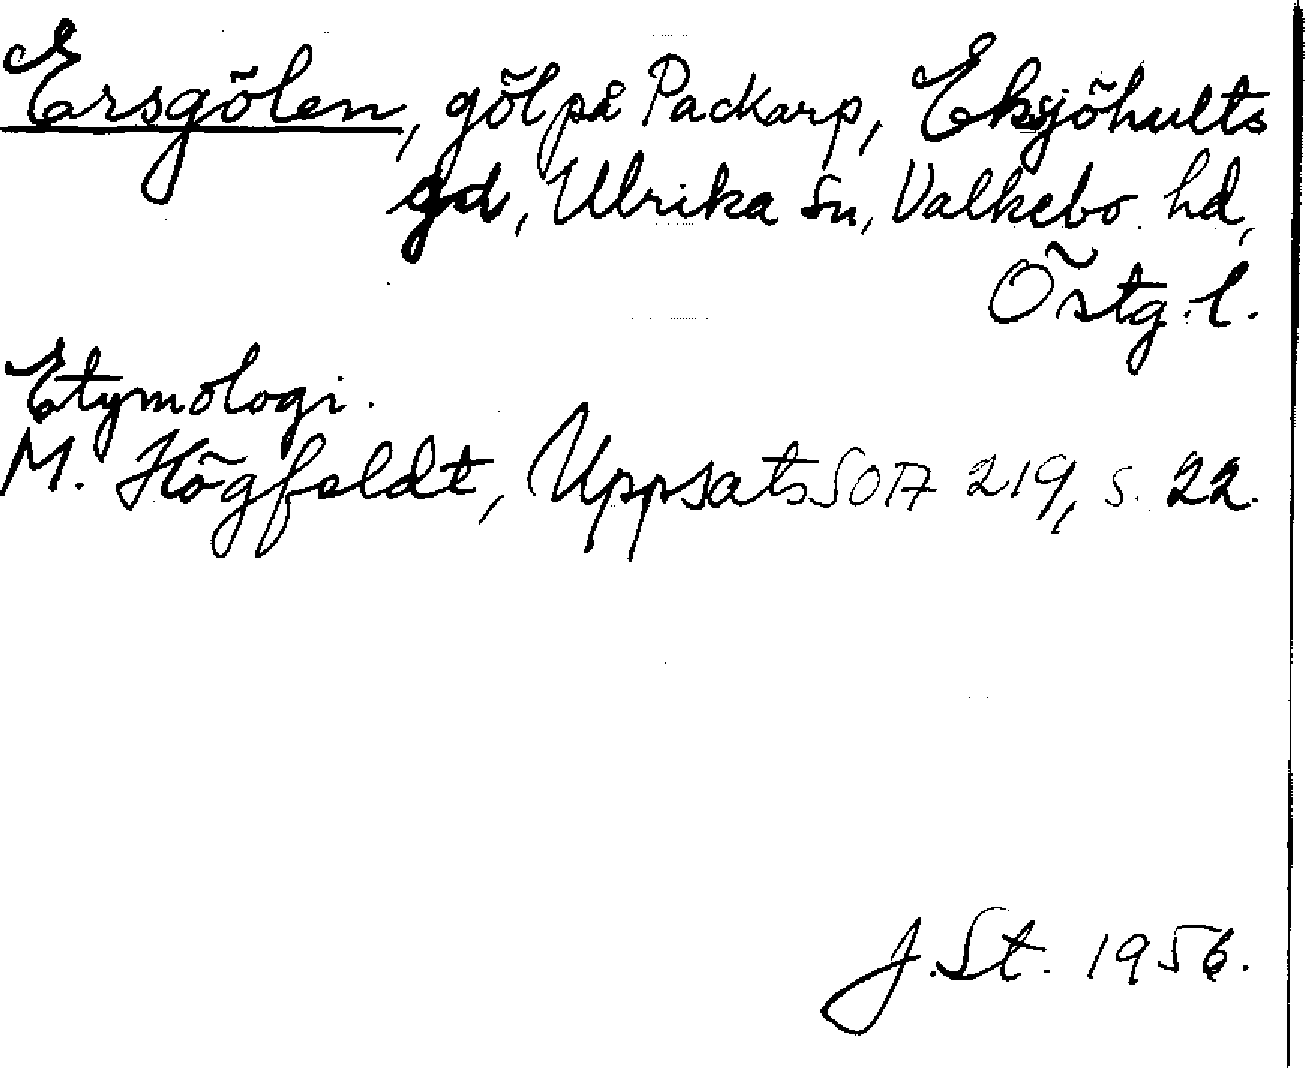 Ersgölen, göl på Packarp, Eksjöhults
gd, Ulrika sn, Valkebo hd,
Östg. l.
Etymologi.
M. Högfeldt, Uppsats SOA 219, s. 22.
J. St. 1956.